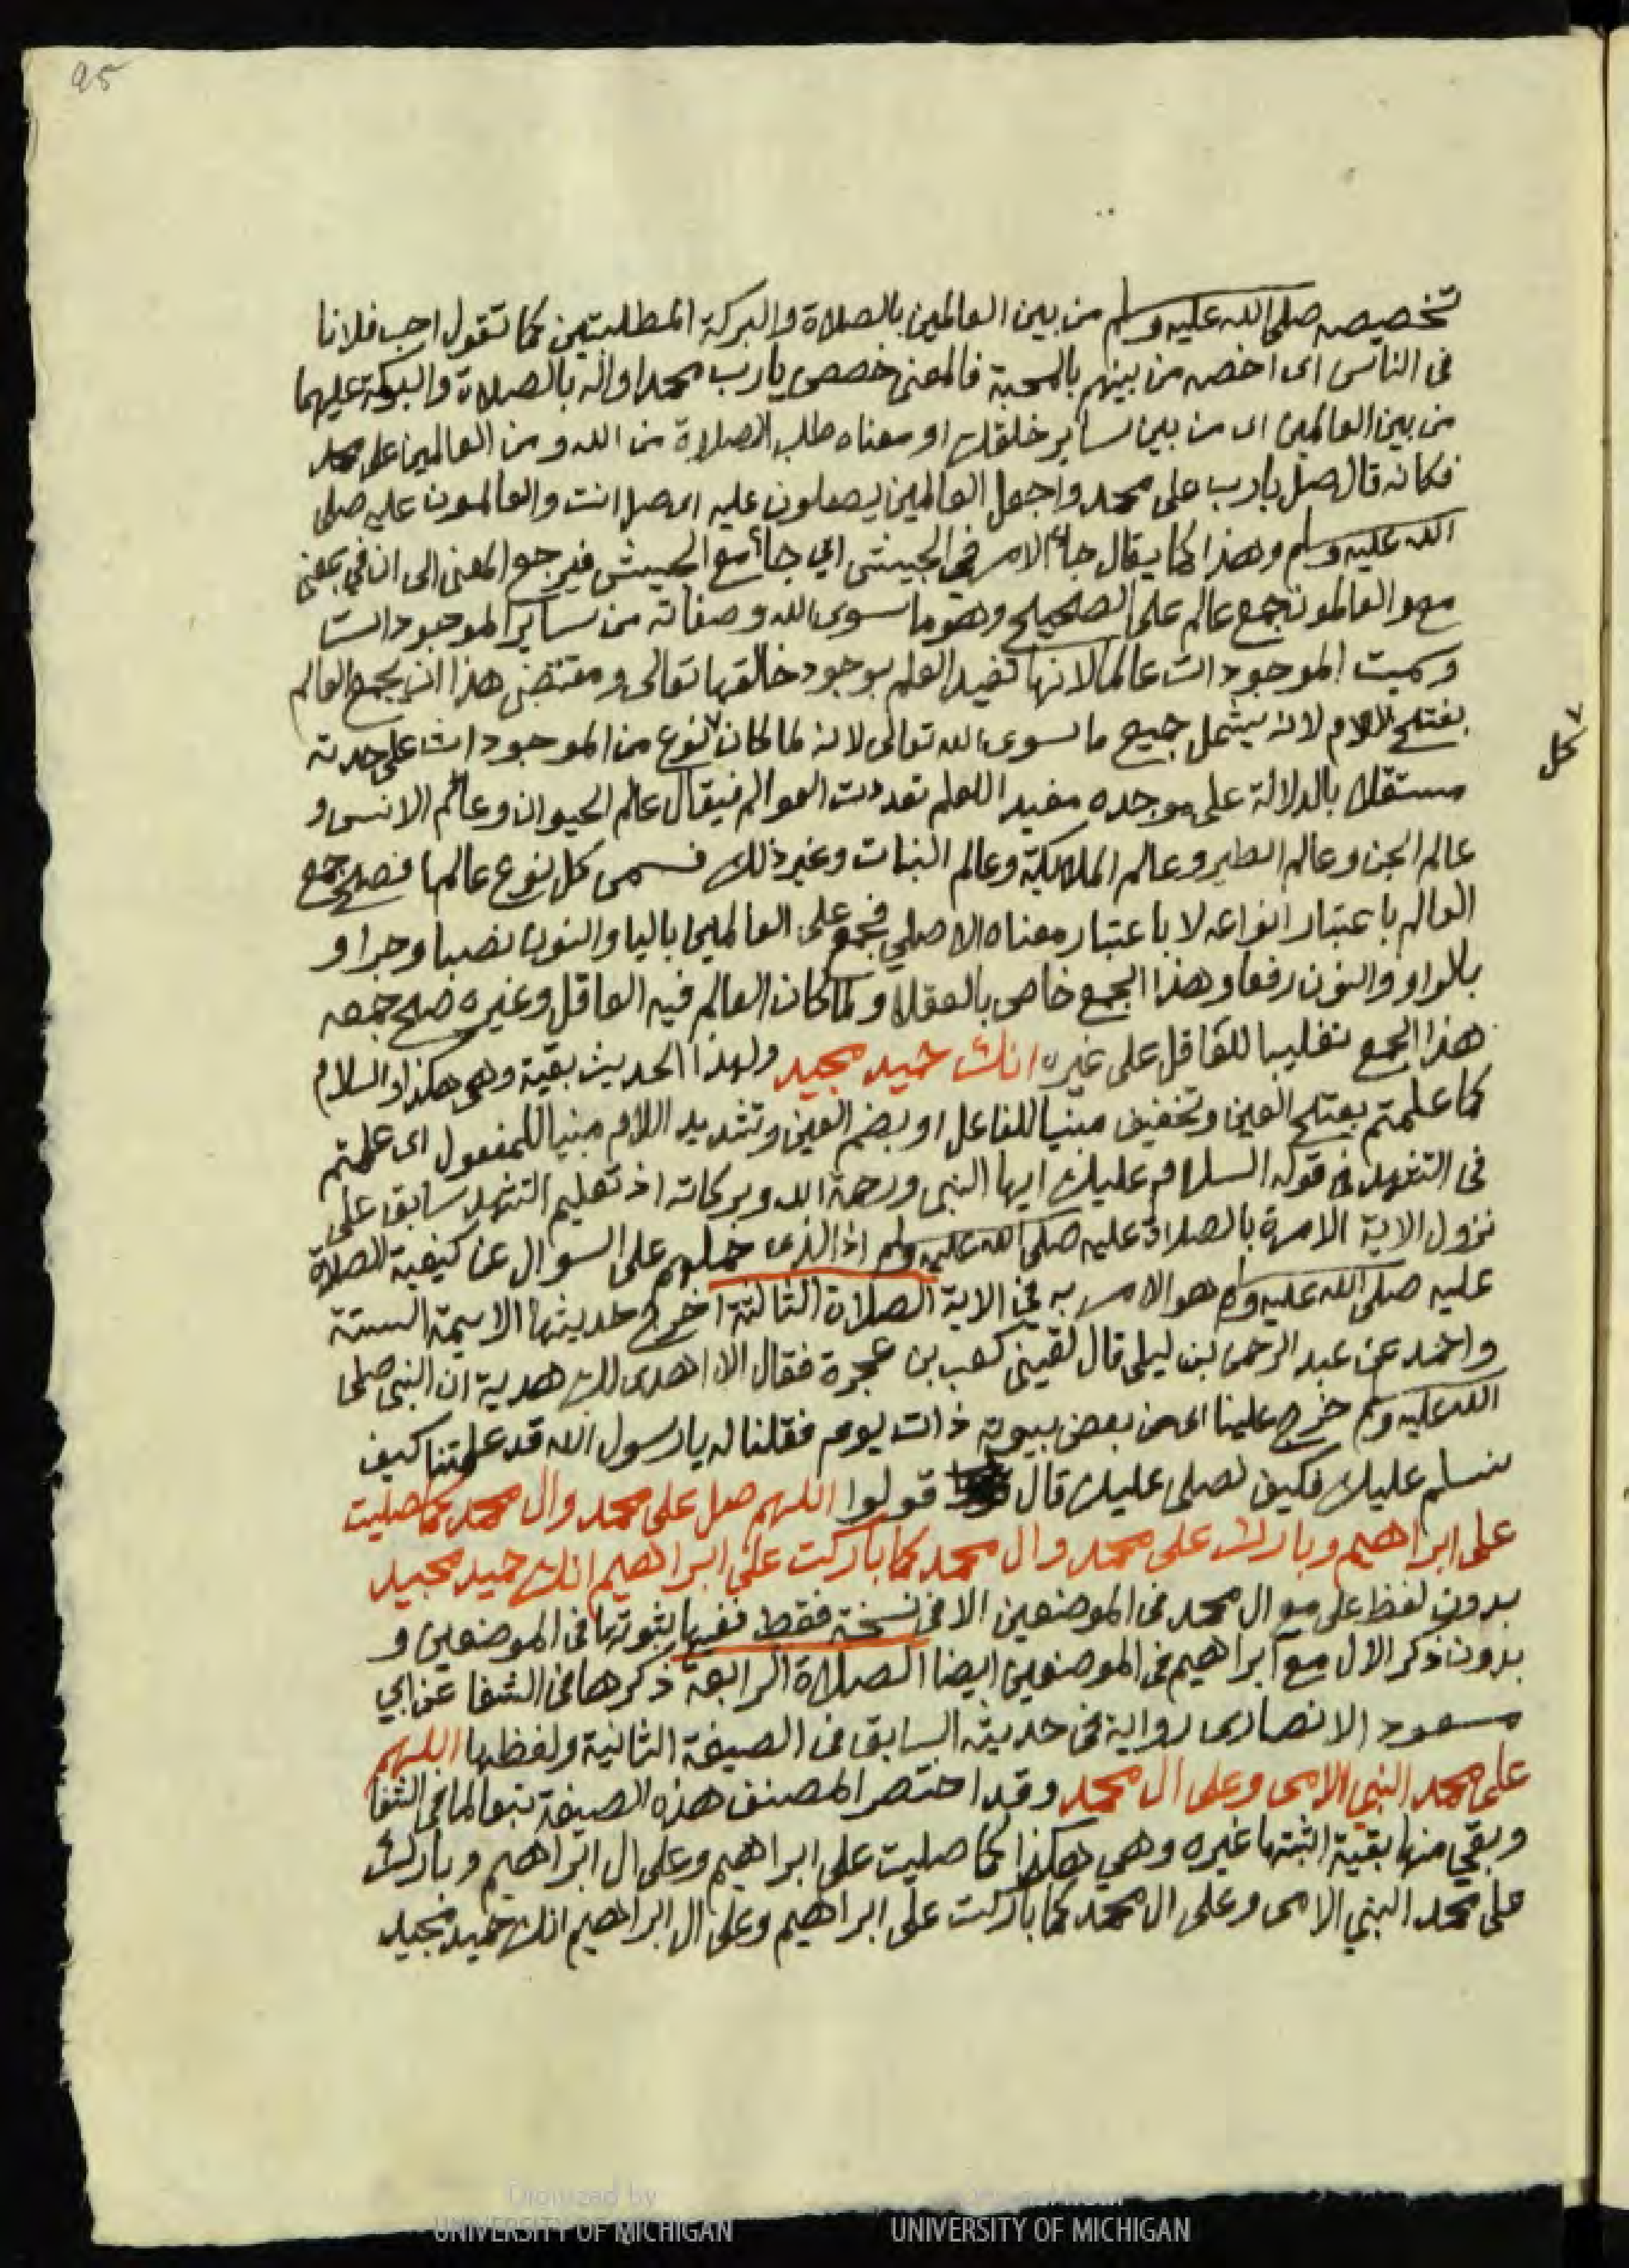 95
تخصيصه صلى الله عليه وسلم من بين العالمين بالصلاة والبركة المطلبتين كما تقول احب فلانا
في الناس اى اخصه من بينهم بالمحبة فالمعنى خصص يارب محمدا واله بالصلاة والبركة عليهما
من بين العالمين اى من بين ساير خلقك او معناه طلب الصلاة من الله ومن العالمين على محمد
فكانه قال صل يارب على محمد واجعل العالمين يصلون عليه اى صل انت والعالمون عليه صلى
الله عليه وسلم وهذا كما يقال جاء الامر في الجيش اي جاء مع الجيش فيرجع المعنى الى ان في بمعنى
مع والعالمون جمع عالم على الصحيح وهو ما سوى الله وصفاته من ساير الموجودات
وسميت الموجودات عالما لانها تفيد العلم بوجود خالقها تعالى ومقتضى هذا ان يجمع العالم
بفتح اللام لانه يشمل جميع ما سوى الله تعالى لانه لما كان نوع من الموجودات على حدته
كل
مستقلا بالدلالة على موجده مفيد اللعلم تعددت العوالم فيقال عالم الحيوان وعالم الانس و
عالم الجن وعالم الطير وعالم الملايكة وعالم النبات وغير ذلك فسمى كل نوع عالما فصح جمع
العالم باعتبار انواعه لا باعتبار معناه الاصلي فجمع على العالمين باليا والنون نصبا وجرا و
بالواو والنون رفعا وهذا الجمع خاص بالعقلا ولما كان العالم فيه العاقل وغيره صلح جمعه
هذا الجمع تغليبا للعاقل على غيره انك حميد مجيد ولهذا الحديث بقية وهى هكذا والسلام
كما علمتم بفتح العين وتخفيف مبنيا للفاعل او بضم العين وتشديد اللام مبنيا للمفعول اى علمتم
في التشهد في قوله السلام عليك ايها النبي ورحمة الله وبركاته اذ تعليم التشهد سابق على
نزول الاية الامرة بالصلاة عليه صلى الله عليه وسلم اذ الذى حملهم على السوال عن كيفية الصلاة
عليه صلى الله عليه وسلم هو الامر به في الاية الصلاة الثالثة اخرج حديثها الايمة الستة
واحمد عن عبد الرحمن بن ليلى قال لقيني كعب بن عجرة فقال الا اهدى لك هدية ان النبي صلى
الله عليه وسلم خرج علينا اى من بعض بيوته ذات يوم فقلنا له يا رسول الله قد علمتنا كيف
نسلم عليك فكيف نصلى عليك قال قولوا اللهم صل على محمد وال محمد كما صليت
على ابراهيم وبارك على محمد وال محمد كما باركت على ابراهيم انك حميد مجيد
بدون لفظ على مع ال محمد في الموضعين الا في نسخة فقط ففيها بثبوتها في الموضعين و
بدون ذكر الال مع ابراهيم في الموضعين ايضا الصلاة الرابعة ذكرها في الشفا عن ابي
مسعود الانصارى رواية في حديثه السابق في الصيغة الثانية ولفظها اللهم
على محمد النبي الامى وعلى ال محمد وقد اختصر المصنف هذه الصيغة تبعا لما في الشفا
وبقي منها بقية اثبتها غيره وهي هكذا كما صليت على ابراهيم وعلى ال ابراهيم وبارك
على محمد النبي الامى وعلى ال محمد كما باركت على ابراهيم وعلى ال ابراهيم انك حميد مجيد
Digitized by
UNIVERSITY OF MICHIGAN
UNIVERSITY OF MICHIGAN